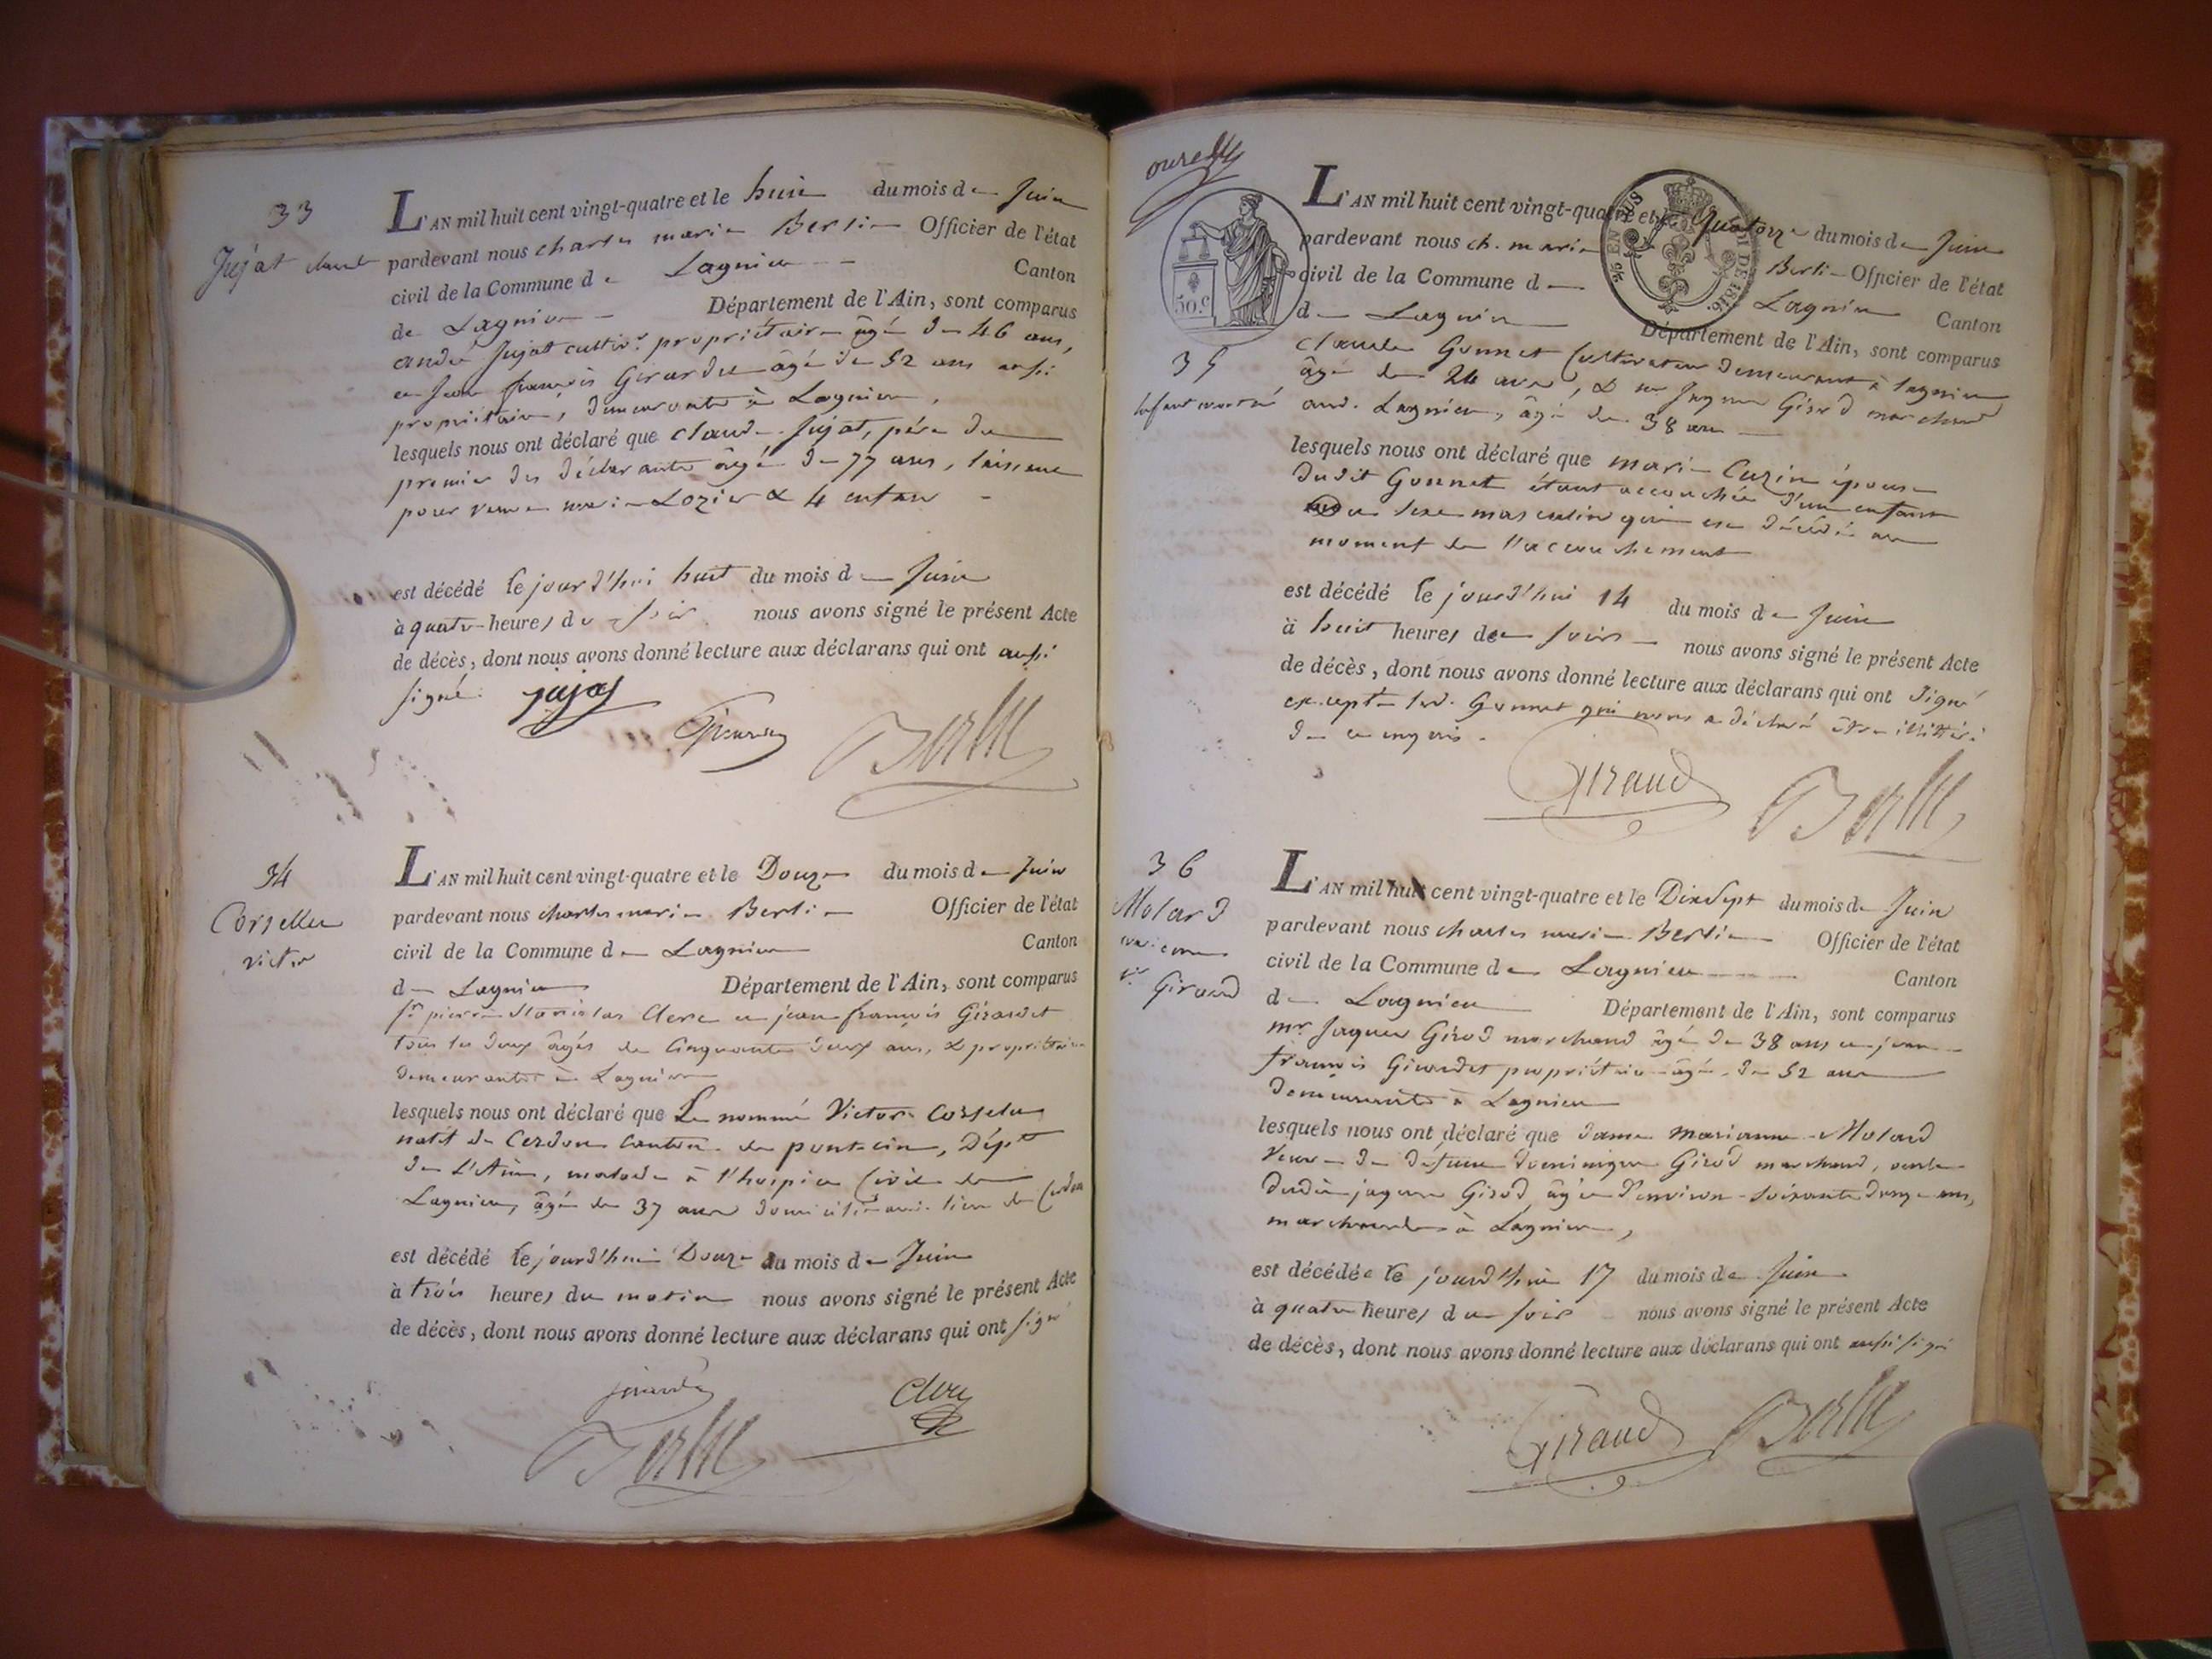 33
Jujat claude
L'AN mil huit cent vingt-quatre et le huit du mois de Juin
pardevant nous charles marie Berlie Officier de l'état
civil de la Commune de Lagnieu Canton
de Lagnieu Département de l'Ain, sont comparus
andré Jujat cultivr propriétaire âgé de 46 ans,
et Jean françois Girardet âgé de 52 ans aussi
propriétaire, demeurants à Lagnieu,
lesquels nous ont déclaré que claude Jujat, père du
premier des déclarants âgé de 77 ans, laissant
pour veuve marie Lozier & 4 enfans
est décédé le jourd'hui huit du mois de Juin
à quatre heures du soir nous avons signé le présent Acte
de décès, dont nous avons donné lecture aux déclarans qui ont aussi
signé. jujat
Berlie
34
Corsellu
victor
L'AN mil huit cent vingt-quatre et le Douze du mois de Juin
pardevant nous charles marie Berlie Officier de l'état
civil de la Commune de Lagnieu Canton
de Lagnieu Département de l'Ain, sont comparus
sr pierre Stanislas Clerc et jean françois Girardet
tous les deux âgés de Cinquante deux ans, & propriétaires
demeurants à Lagnieu
lesquels nous ont déclaré que Le nommé Victor Corselu
natif de Cerdon Canton de pont-cin, Dépt
de L'Ain, malade à l'hospice Civil de
Lagnieu, âgé de 37 ans domicilié lieu de Cerdon
est décédé le jourd'hui Douze du mois de Juin
à trois heures du matin nous avons signé le présent Acte
de décès, dont nous avons donné lecture aux déclarans qui ont signé
girardet Clerc
Berlie
35
Enfant mort né
50.C
L'AN mil huit cent vingt-quatre et le Quatorze du mois de Juin
pardevant nous ch. marie Berlie Officier de l'état
civil de la Commune de Lagnieu Canton
de Lagnieu Département de l'Ain, sont comparus
claude Gonnet Cultivateur demeurant à lagnieu
âgé de 24 ans, & sr Jaques Girod marchand
aud. Lagnieu, âgé de 38 ans
lesquels nous ont déclaré que marie Cuzin épouse
dudit Gonnet étant accouchée d'un enfant
du sexe masculin qui est décédé au
moment de l'accouchement
est décédé le jourd'hui 14 du mois de Juin
à huit heures du soir nous avons signé le présent Acte
de décès, dont nous avons donné lecture aux déclarans qui ont signé
excepté led. Gonnet qui nous a déclaré être illitéré
de ce enquis.
Giraud Berlie
36
Molard
marianne
ve Giraud
L'AN mil huit cent vingt-quatre et le Dix Sept du mois de Juin
pardevant nous charles marie Berlie Officier de l'état
civil de la Commune de Lagnieu Canton
de Lagnieu Département de l'Ain, sont comparus
mr Jaques Girod marchand âgé de 38 ans et jean
françois Girardet propriétaire âgé de 52 ans
demeurants à Lagnieu
lesquels nous ont déclaré que dame marianne Molard
Veuve de défunt dominique Girod marchand,
dudit jaques Girod, âgée d'environ Soixante douze ans,
marchande à Lagnieu,
est décédée le jourd'hui 17 du mois de Juin
à quatre heures du soir nous avons signé le présent Acte
de décès, dont nous avons donné lecture aux déclarans qui ont aussi signé
Giraud Berlie